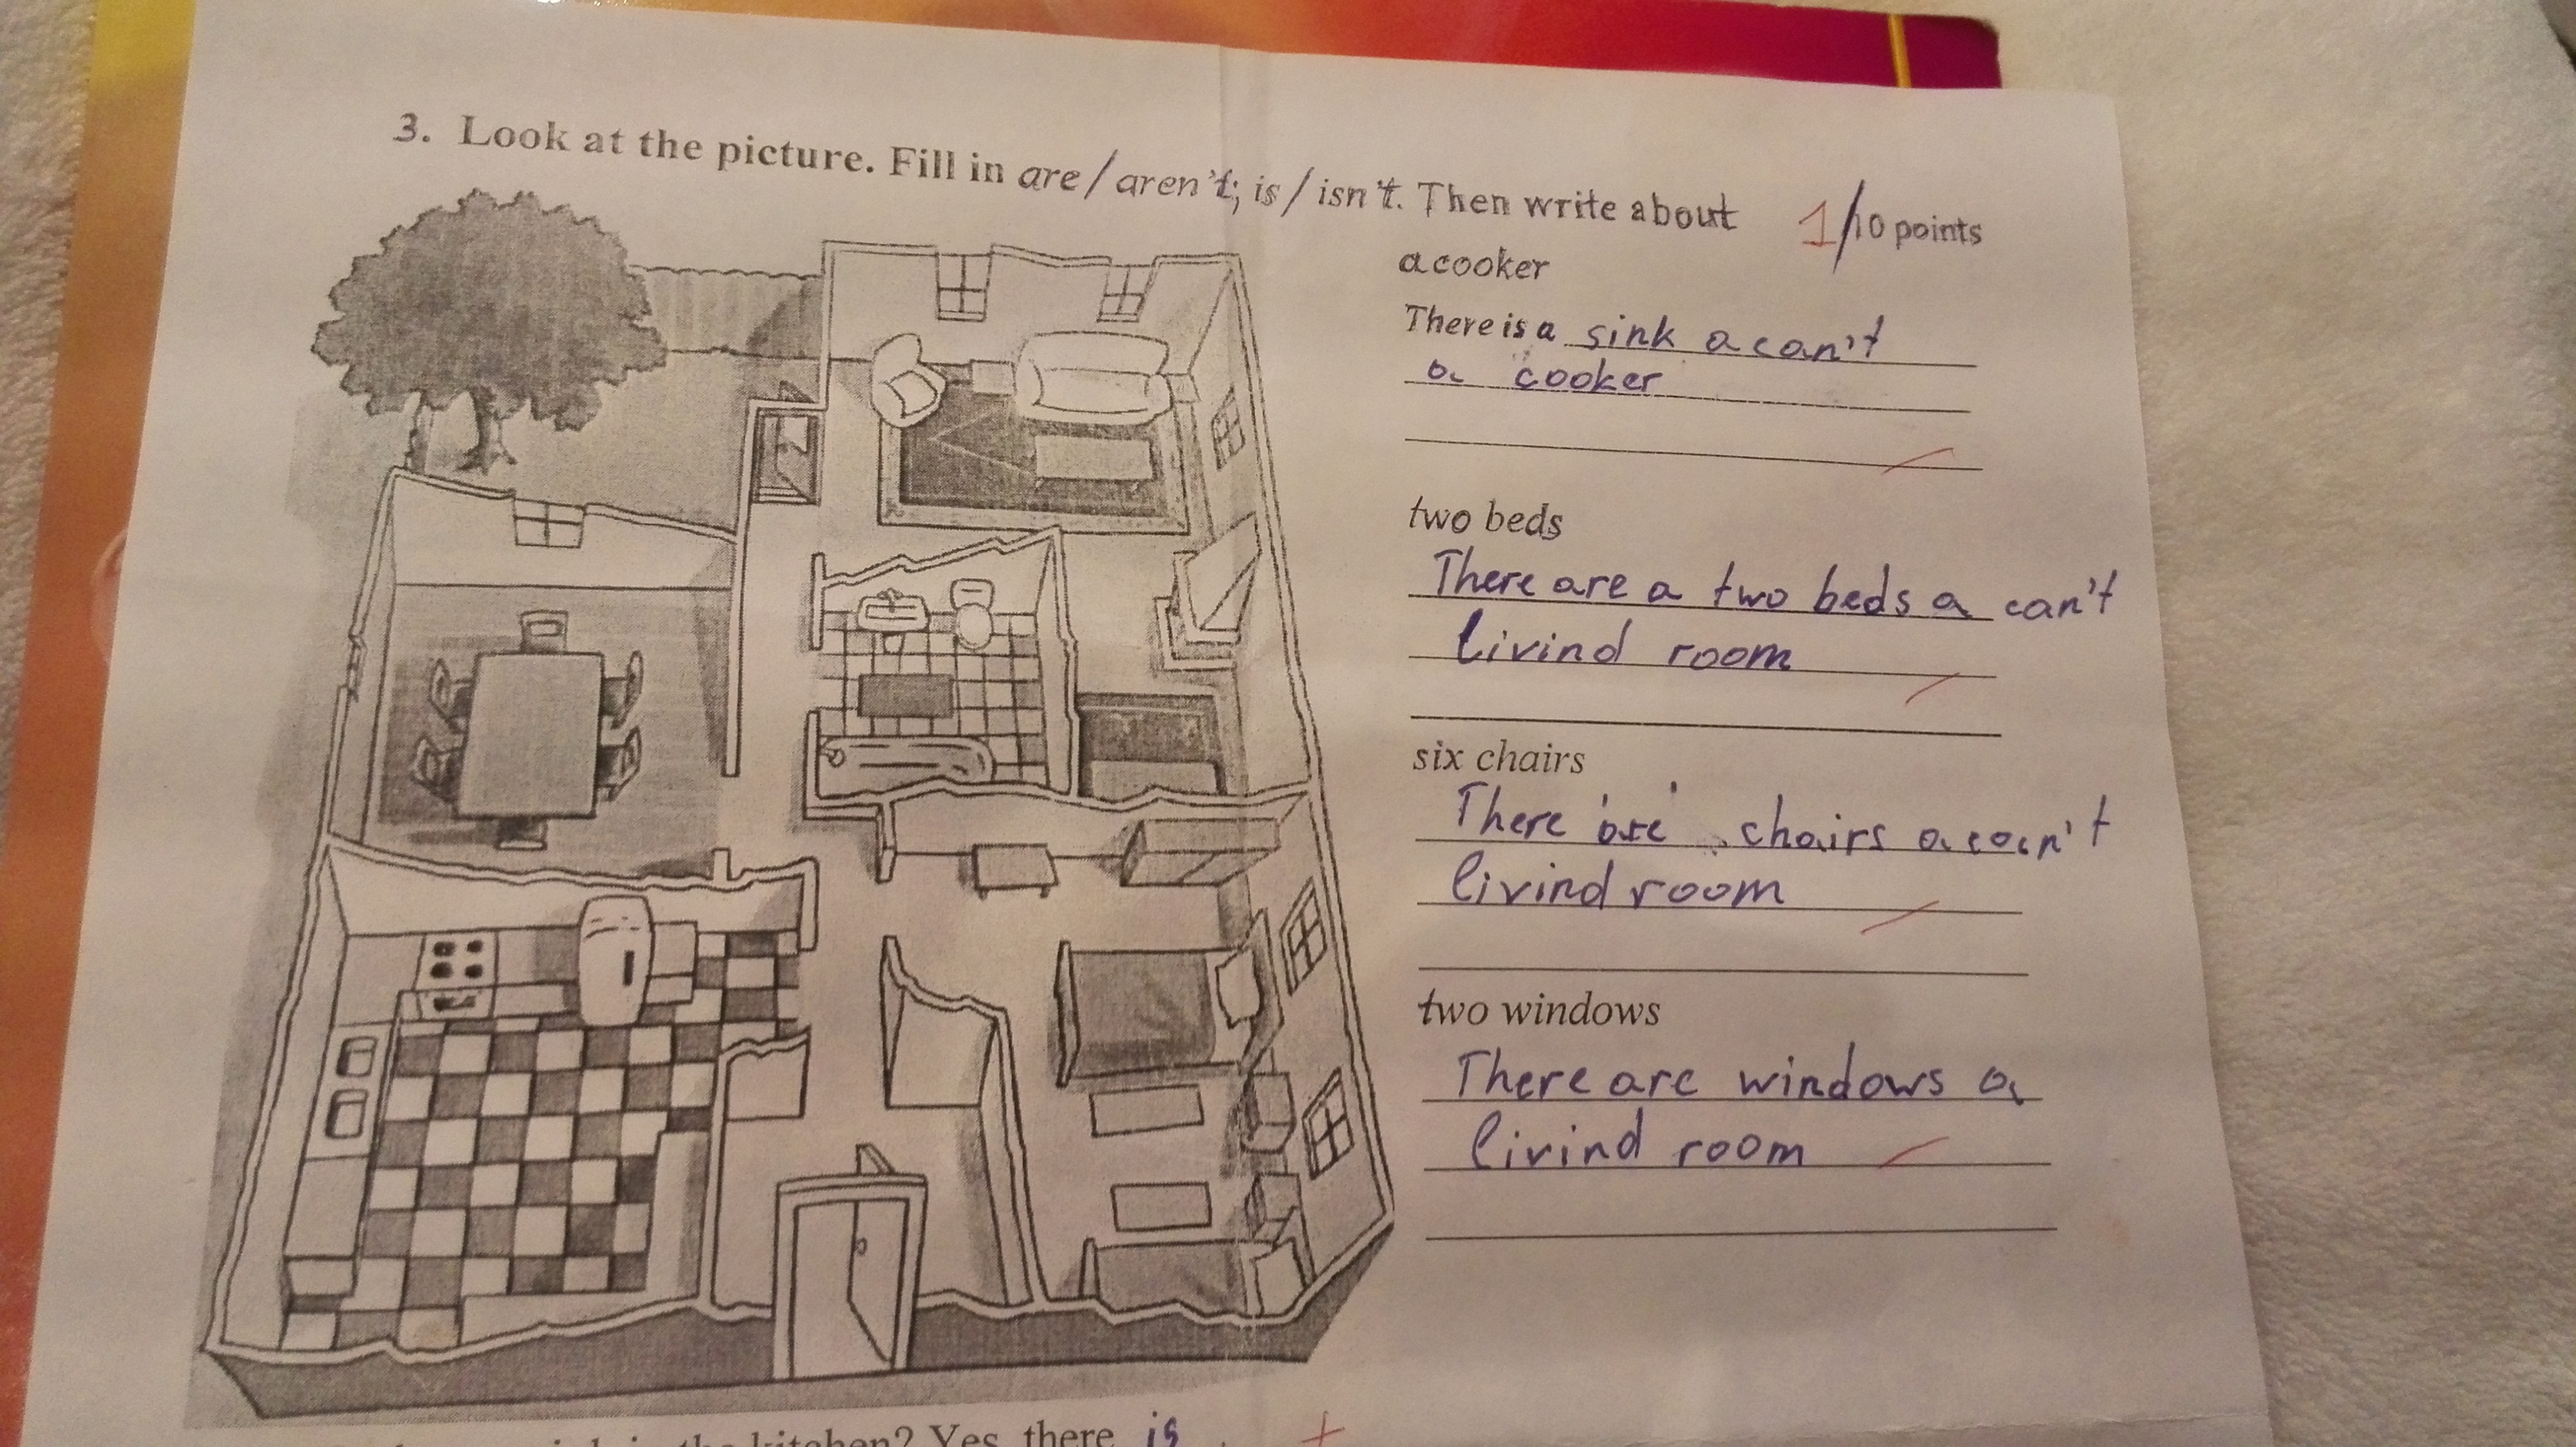 3. Look at the picture. Fill in are/aren't; is/isn't. Then write about
1/10 points
a cooker
There is a sink a can't
a cooker
two beds
There are a two beds a can't
livind room
six chairs
There are chairs a can't
livind room
two windows
There are windows a
livind room
in the kitchen? Yes, there is.
+